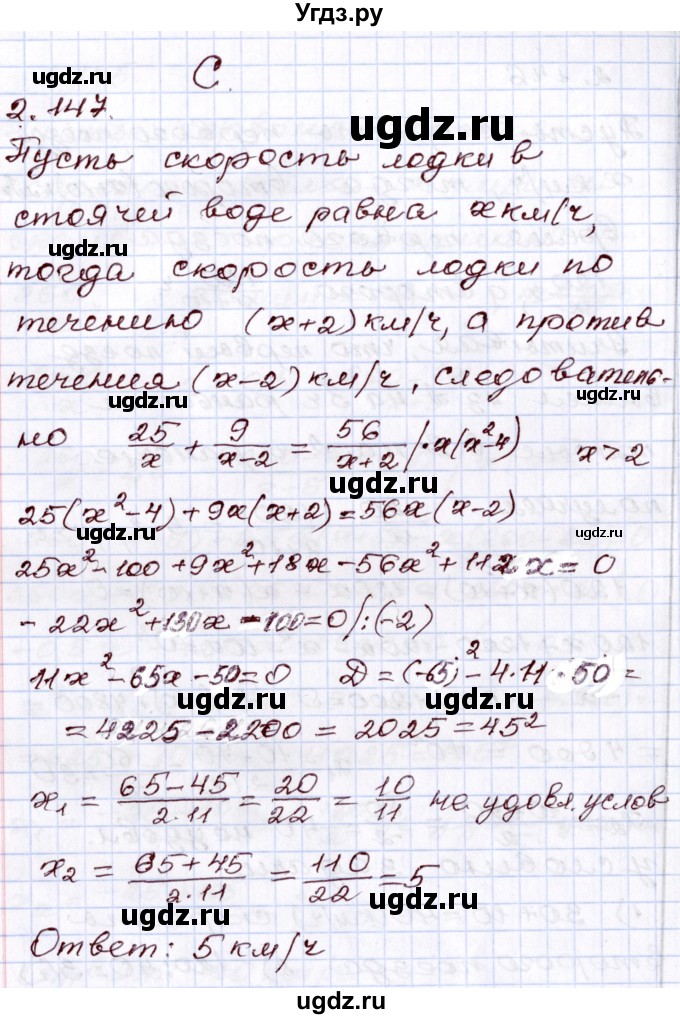 Угдз.ру
С.
ugdz.ru ugdz.ru
2.147.
Пусть скорость лодки в
стоячей воде равна x км/ч,
ugdz.ru
тогда скорость лодки по
ugdz.ru
течению (x+2) км/ч, а против
течения (x-2) км/ч, следователь-
ugdz.ru ugdz.ru
но 25/x + 9/(x-2) = 56/(x+2) |·x(x²-4) x>2
ugdz.ru
25(x²-4)+9x(x+2)=56x(x-2)
ugdz.ru
25x²-100+9x²+18x-56x²+112x=0
ugdz.ru
-22x²+130x-100=0 |:(-2)
ugdz.ru
11x²-65x-50=0 D=(-65)²-4·11·50=
ugdz.ru
=4225-2200=2025=45²
ugdz.ru
x₁ = (65-45)/(2·11) = 20/22 = 10/11 не удовл. услов
ugdz.ru
x₂ = (65+45)/(2·11) = 110/22 = 5
ugdz.ru ugdz.ru
Ответ: 5 км/ч
ugdz.ru
ugdz.ru